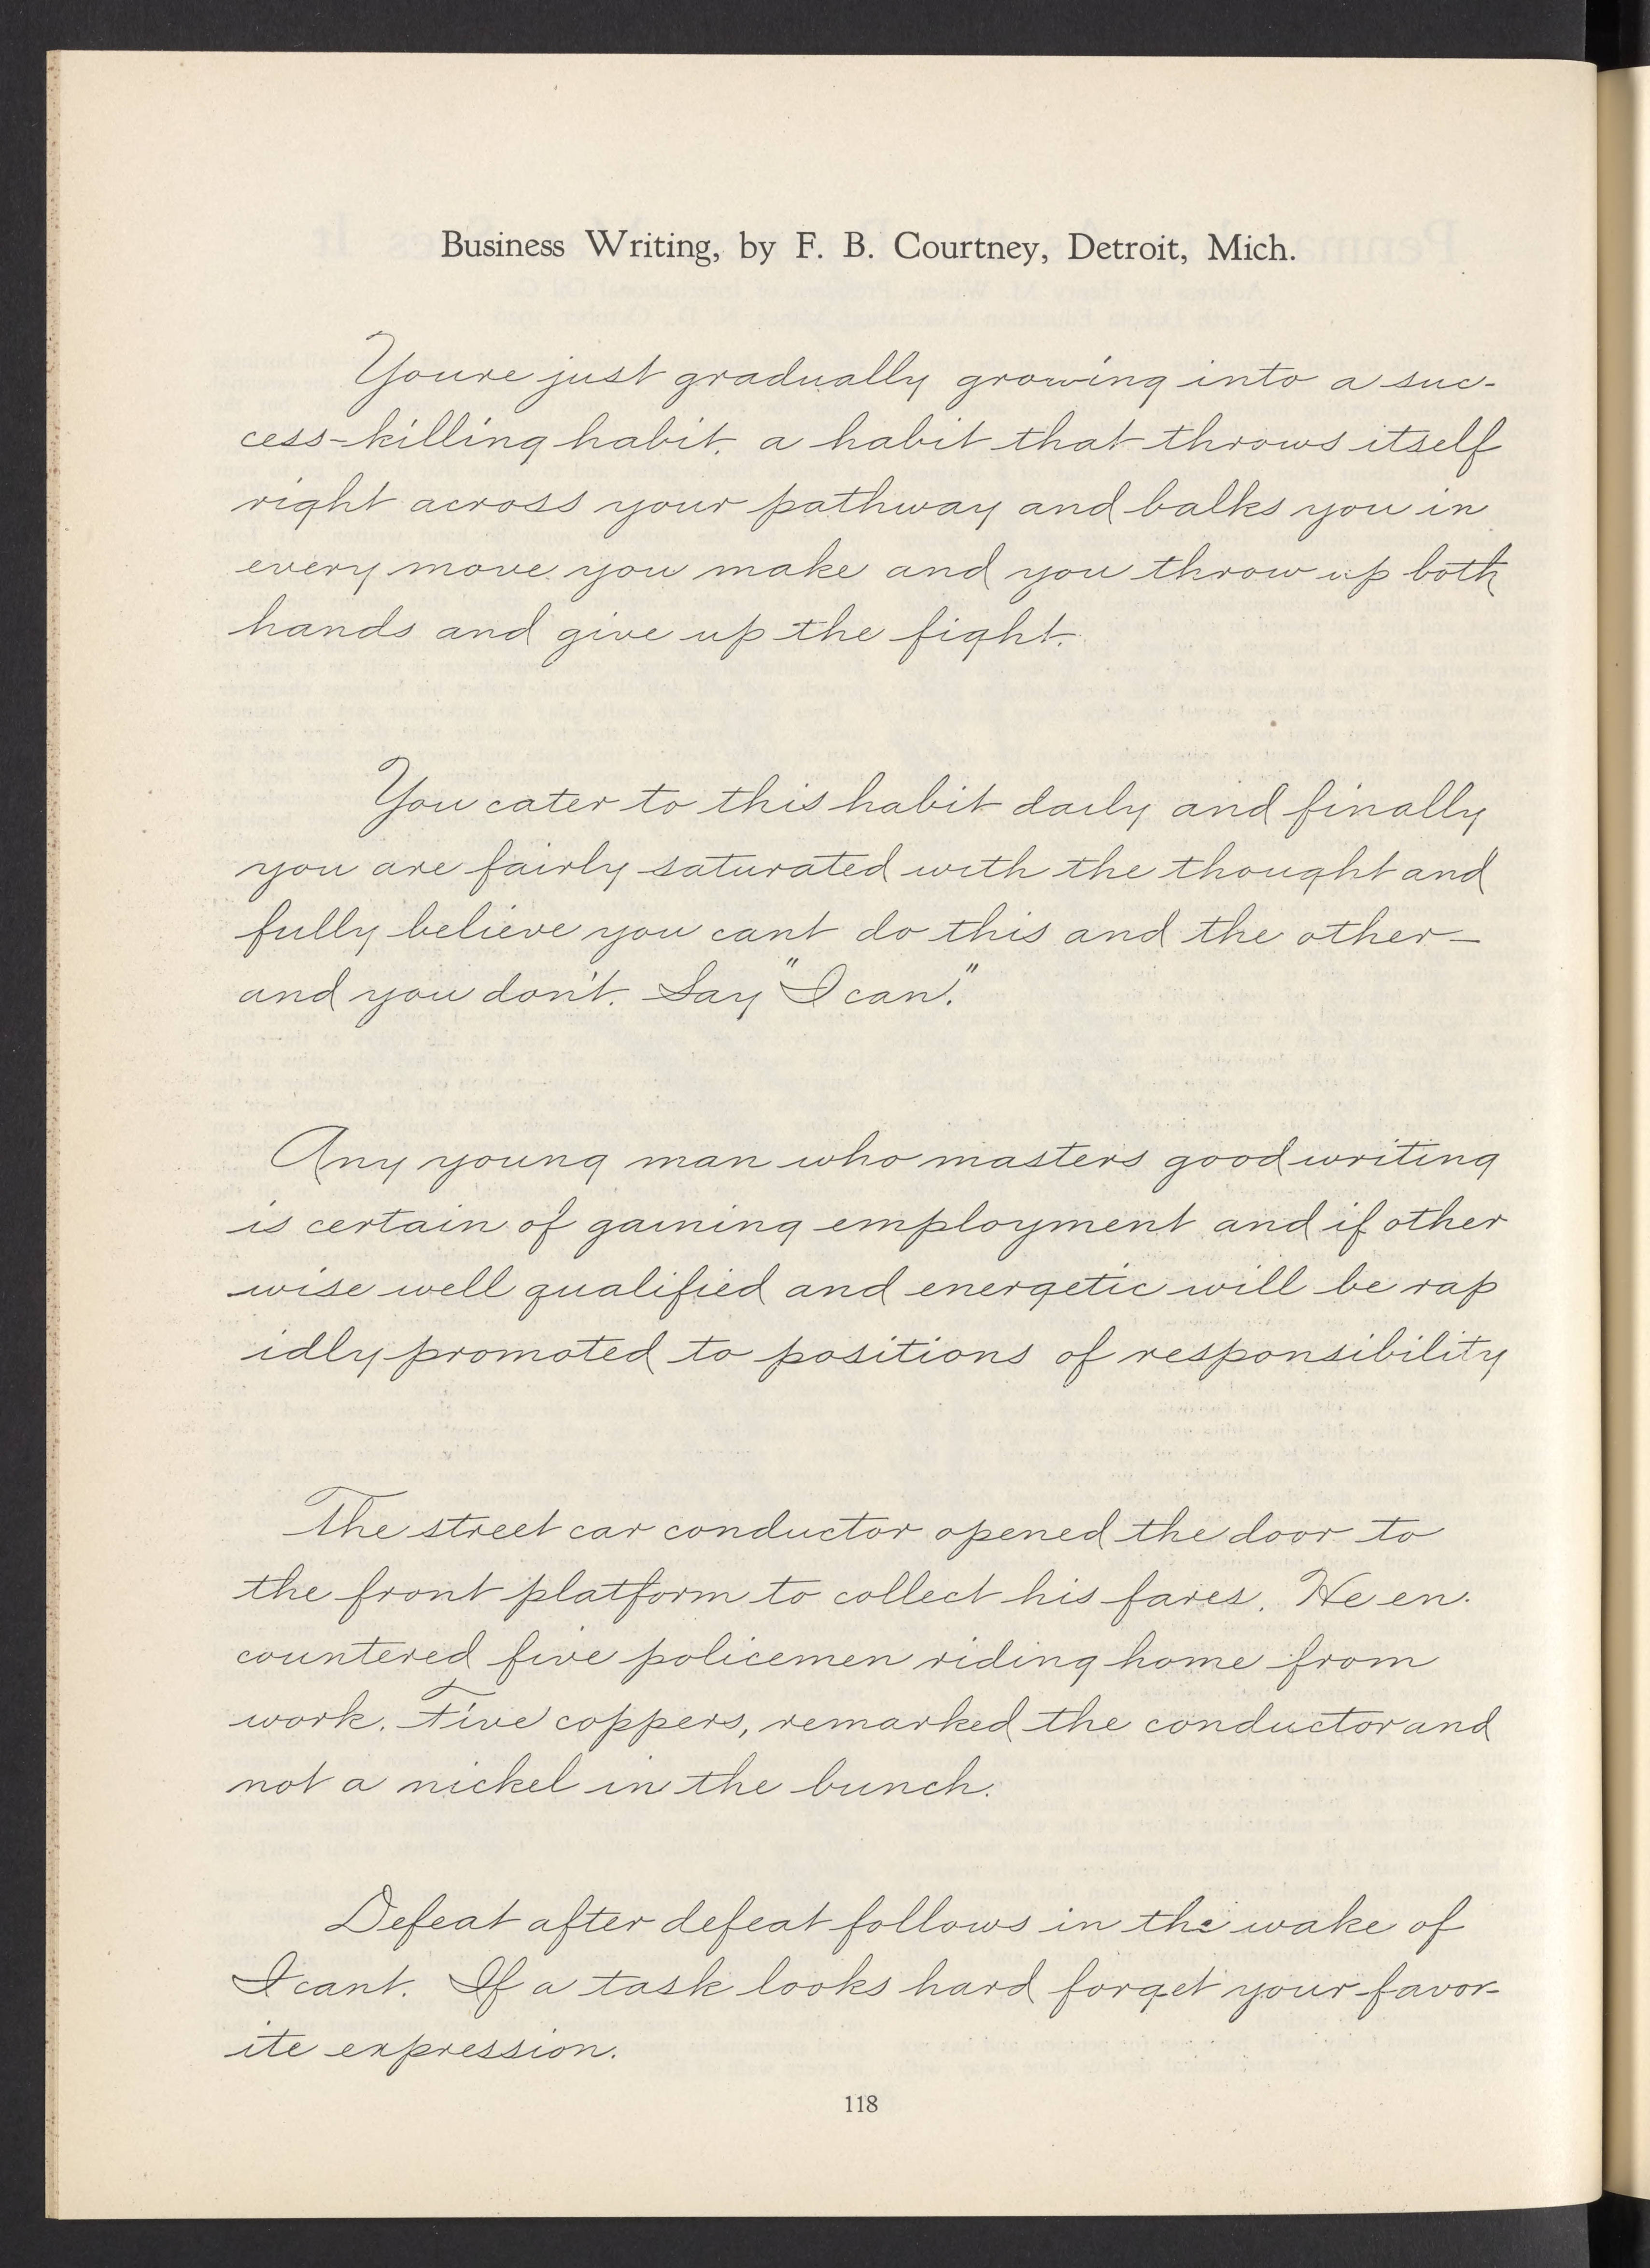 Business Writing, by F. B. Courtney, Detroit, Mich.
Youre just gradually growing into a suc-
cess-killing habit, a habit that throws itself
right across your pathway and balks you in
every move you make and you throw up both
hands and give up the fight.
You cater to this habit daily and finally
you are fairly saturated with the thought and
fully believe you cant do this and the other—
and you don't. Say "I can."
Any young man who masters good writing
is certain of gaining employment and if other
wise well qualified and energetic will be rap
idly promoted to positions of responsibility
The street car conductor opened the door to
the front platform to collect his fares. He en-
countered five policemen riding home from
work. Five coppers, remarked the conductor and
not a nickel in the bunch.
Defeat after defeat follows in the wake of
I cant. If a task looks hard forget your favor-
ite expression.
118